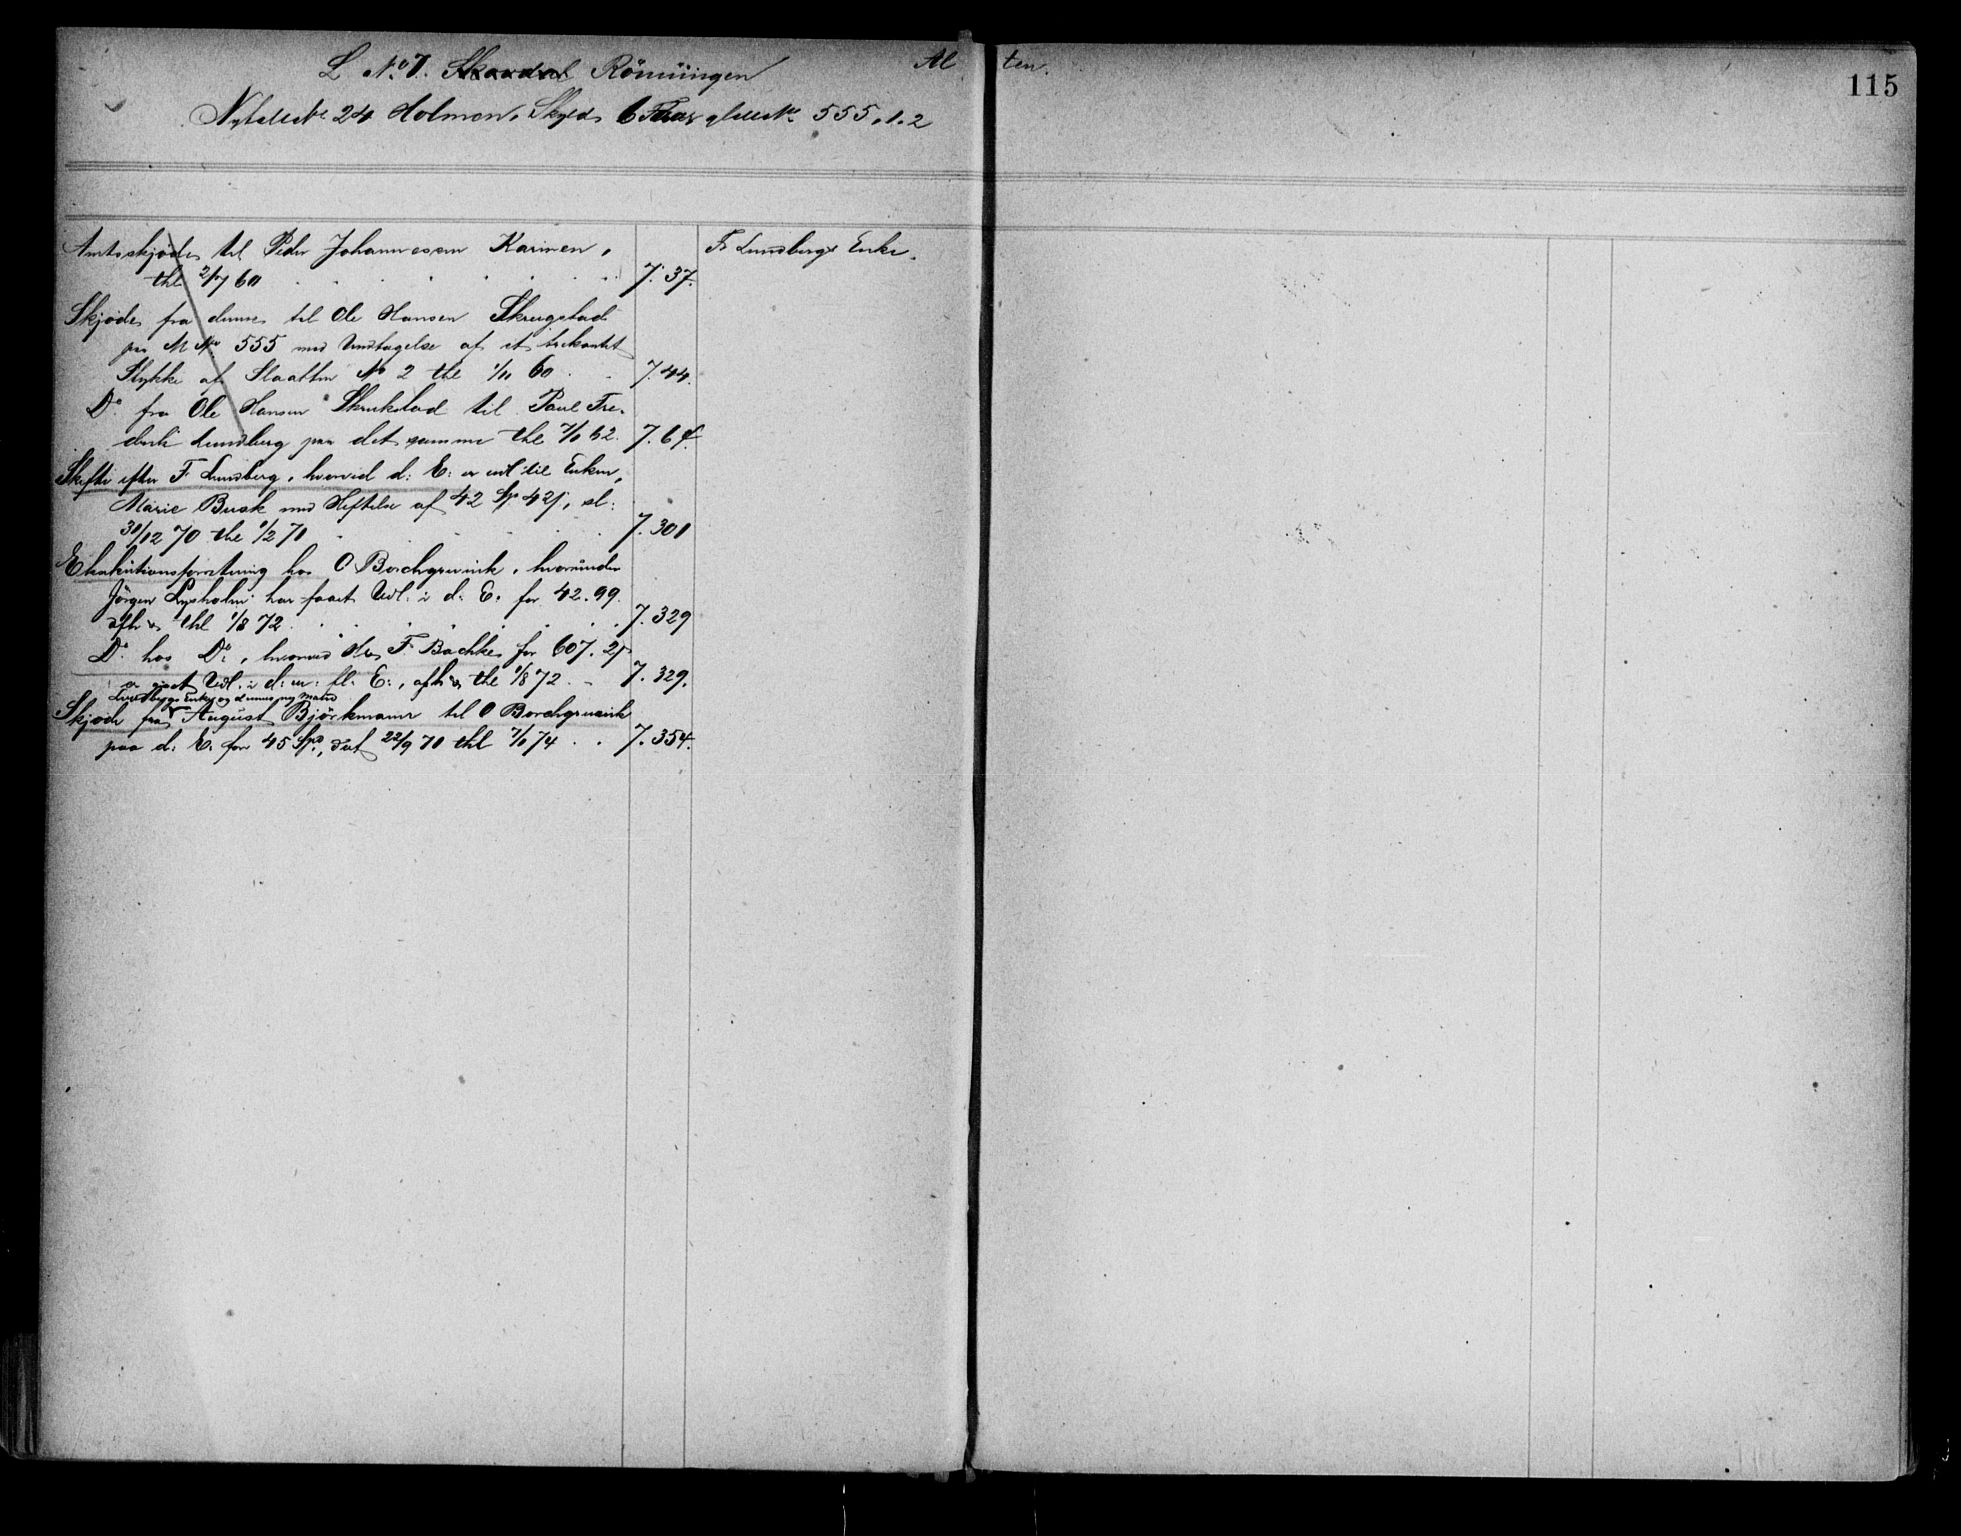 Al ten.
115
L No 7. Skaadal Rönningen
Nytalleter 24 Holmen. Skyld 6 glletr 555.1.2
Amtsskjøde til Peder Johannessen Karinen,
thl 2/7 60 7.37.
F. Lundbergs Enke.
Skjøde fra denne til Ole Hansen Skrugstad
paa M No 555 med Undtagelse af et trekantet
Stykke af Slaatten No 2 thl 1/11 60 7.44.
Do fra Ole Hansen Skrukstad til Paul Fre-
derik Lundberg paa det samme thl 7/10 62. 7.64
Skifte efter F Lundberg, hvorved d: E: er udl til Enken,
Marie Busk med Heftelse af 42 Sp 42ß, sl:
30/12 70 thl 1/2 71 7.301
Exekutionsforretning hos O Borchgrevink, hvorunder
Jörgen Lysholm har faaet Udl. i d: E: for 42.99.
afh thl 1/8 72 7.329
Do hos Do, hvorved F. Bachke for 607. 2ß
er gjort Udl. i d: m: fl: E:, afh thl 1/8 72 7.329.
Lundbergs Enke og dennes ny Mand
Skjøde fra August Björkmann til O Borchgrevink
paa d: E: for 45 Spd, dat 22/9 70 thl 7/1 74 7.354.